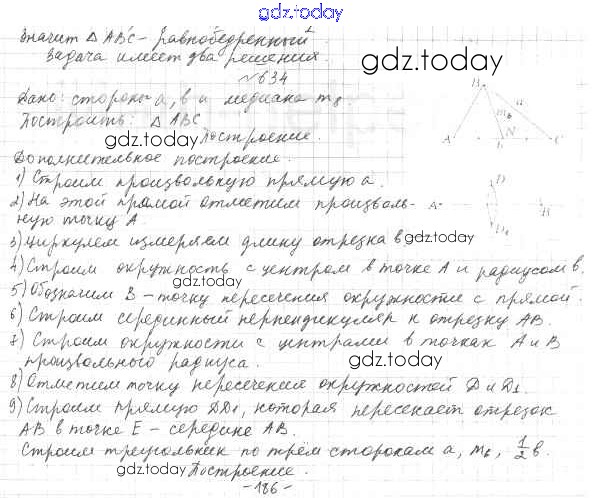 gdz.today
Значит △ABC - равнобедренный.
Задача имеет два решения.
№634
gdz.today
Дано: стороны a, b и медиана m_b
Построить: △ABC
gdz.today
Построение.
B
a
m_b
A
b
N
C
Дополнительное построение.
1) Строим произвольную прямую a.
2) На этой прямой отметим произволь-
ную точку A.
3) Циркулем измеряем длину отрезка b
gdz.today
4) Строим окружность с центром в точке A и радиусом b.
gdz.today
5) Обозначим B - точку пересечения окружности с прямой.
6) Строим серединный перпендикуляр к отрезку AB.
7) Строим окружности с центрами в точках A и B
произвольного радиуса.
gdz.today
8) Отметим точку пересечения окружностей D и D₁.
9) Строим прямую DD₁, которая пересекает отрезок
AB в точке E - середине AB.
gdz.today
Строим треугольник по трём сторонам a, m_b, 1/2 b.
Построение.
gdz.today
- 186 -
D
A
B
D₁